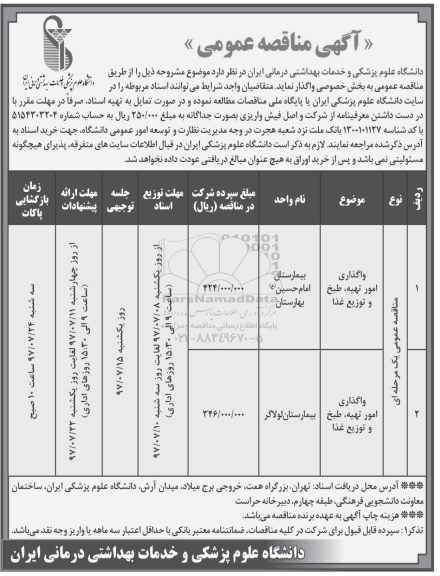 « آگهی مناقصه عمومی »
دانشگاه علوم پزشکی و خدمات بهداشتی درمانی ایران
دانشگاه علوم پزشکی و خدمات بهداشتی درمانی ایران در نظر دارد موضوع مشروحه ذیل را از طریق
مناقصه عمومی به بخش خصوصی واگذار نماید. متقاضیان واجد شرایط می توانند اسناد مربوطه را در
سایت دانشگاه علوم پزشکی ایران یا پایگاه ملی مناقصات مطالعه نموده و در صورت تمایل به تهیه اسناد، صرفاً در مهلت مقرر با
در دست داشتن معرفینامه از شرکت و اصل فیش واریزی بصورت جداگانه به مبلغ ۲۵۰/۰۰۰ ریال به حساب شماره ۵۱۵۴۳۰۳۲۰۴
با کد شناسه ۱۳۰۰۱۰۱۱۲۷ بانک ملت نزد شعبه هجرت در وجه مدیریت نظارت و توسعه امور عمومی دانشگاه، جهت خرید اسناد به
آدرس ذکرشده مراجعه نمایند. لازم به ذکر است دانشگاه علوم پزشکی ایران در قبال اطلاعات سایت های متفرقه، پذیرای هیچگونه
مسئولیتی نمی باشد و پس از خرید اوراق به هیچ عنوان مبالغ دریافتی عودت داده نخواهد شد.
ردیف
نوع
موضوع
نام واحد
مبلغ سپرده شرکت
در مناقصه (ریال)
مهلت توزیع
اسناد
جلسه
توجیهی
مهلت ارائه
پیشنهادات
زمان
بازگشایی
پاکات
۱
مناقصه عمومی یک مرحله ای
واگذاری
امور تهیه، طبخ
و توزیع غذا
بیمارستان
امام حسین(ع)
بهارستان
۴۲۴/۰۰۰/۰۰۰
از روز یکشنبه ۹۷/۰۷/۰۸ لغایت روز سه شنبه ۹۷/۰۷/۱۰
(ساعت ۹ الی ۱۵:۳۰ روزهای اداری)
روز یکشنبه ۹۷/۰۷/۱۵
از روز چهارشنبه ۹۷/۰۷/۱۱ لغایت روز یکشنبه ۹۷/۰۷/۲۲
(ساعت ۹ الی ۱۵:۳۰ روزهای اداری)
سه شنبه ۹۷/۰۷/۲۴ ساعت ۱۰ صبح
۲
واگذاری
امور تهیه، طبخ
و توزیع غذا
بیمارستان لولاگر
۳۴۶/۰۰۰/۰۰۰
ParsNamadData
پایگاه اطلاع رسانی مناقصه و مزایده
۰۲۱-۸۸۳۴۹۶۷۰-۵
*** آدرس محل دریافت اسناد: تهران، بزرگراه همت، خروجی برج میلاد، میدان آرش، دانشگاه علوم پزشکی ایران، ساختمان
معاونت دانشجویی فرهنگی، طبقه چهارم، دبیرخانه حراست
*** هزینه چاپ آگهی به عهده برنده مناقصه می‌باشد.
تذکر۱: سپرده قابل قبول برای شرکت در کلیه مناقصات، ضمانتنامه معتبر بانکی با حداقل اعتبار سه ماهه یا واریز وجه نقد می‌باشد.
دانشگاه علوم پزشکی و خدمات بهداشتی درمانی ایران